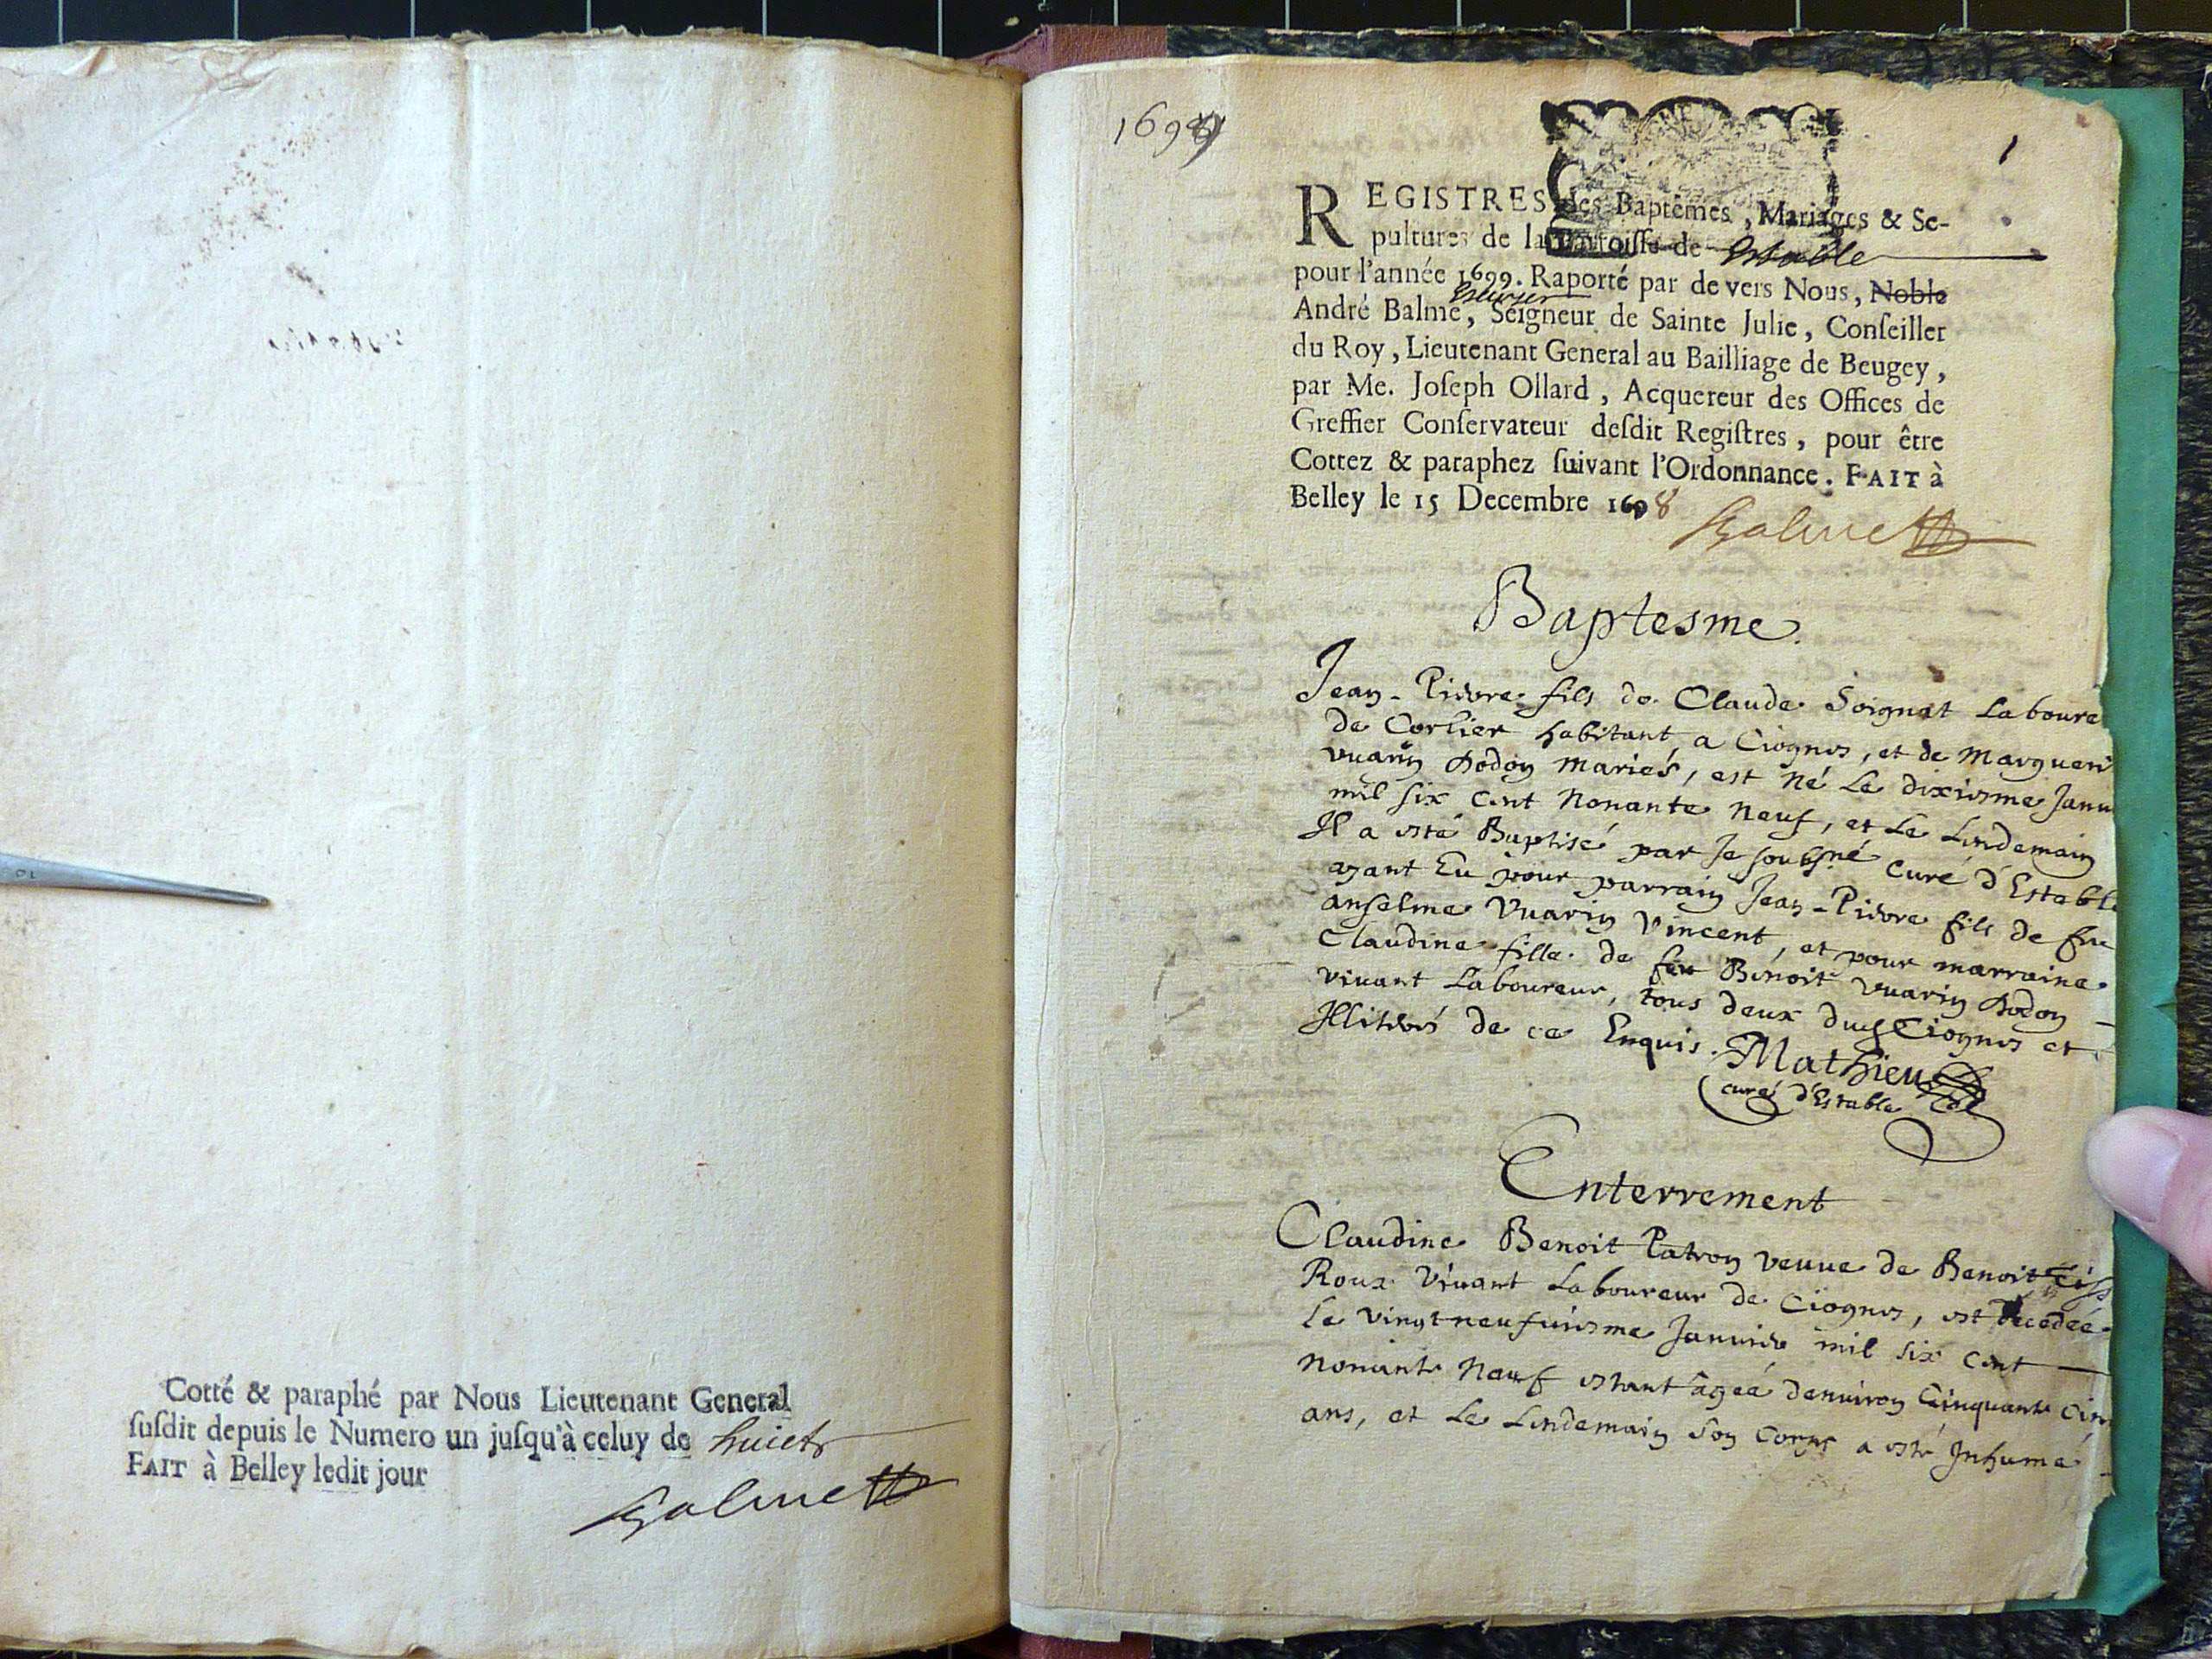 Cotté & paraphé par Nous Lieutenant General
suſdit depuis le Numero un juſqu'à celuy de huict
FAIT à Belley ledit jour
Balme
1699
1
REGISTRES des Baptêmes, Mariages & Se-
pultures de la Parroiſſe de Estable
pour l'année 1699. Raporté par devers Nous, Noble
Escuyer
André Balme, Seigneur de Sainte Julie, Conſeiller
du Roy, Lieutenant General au Bailliage de Beugey,
par Me. Joſeph Ollard, Acquereur des Offices de
Greffier Conſervateur deſdit Regiſtres, pour être
Cottez & paraphez ſuivant l'Ordonnance. FAIT à
Belley le 15 Decembre 1698
Balme
Baptesme.
Jean-Pierre fils de Claude Soignat Laboure
de Corlier habitant a Ciognes, et de Margueri
vuarin Dodon mariés, est né Le dixiesme Janu
mil six cent Nonante Neuf, et Le Lendemain
Il a esté Baptisé par Je soubsné Curé d'Estable
ayant Eu pour parrain Jean-Pierre fils de feu
anselme Vuarin Vincent, et pour marraine
Claudine fille de feu Benoit vuarin Dodon
vivant Laboureur, tous deux dud Ciognes et
Illiterés de ce Enquis. Mathieu
curé d'Estable
Enterrement
Claudine Benoit Patron veuve de Benoit
Roux Vivant Laboureur de Ciognes, est decedeé
Le vingtneufuiesme Januier mil six cent
nonante Neuf estant âgeé denuiron Cinquante Cin
ans, et Le Lendemain Son Corps a esté Inhumé